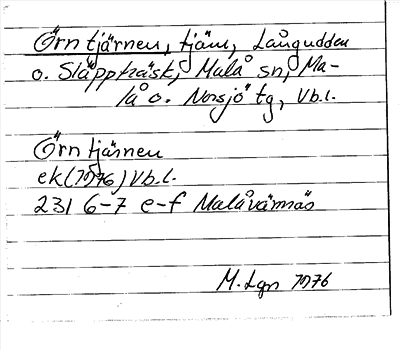 Örntjärnen, tjärn, Långudden
o. Släppträsk, Malå sn, Ma-
lå o. Norsjö tg, Vb.l.
Örntjärnen
ek (1976) Vb.l.
231 6-7 e-f Malåvännäs
M. Lgn 1976